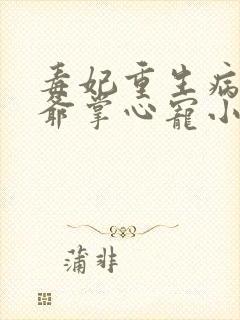 毒妃重生病
爷掌心宠小
蒲非